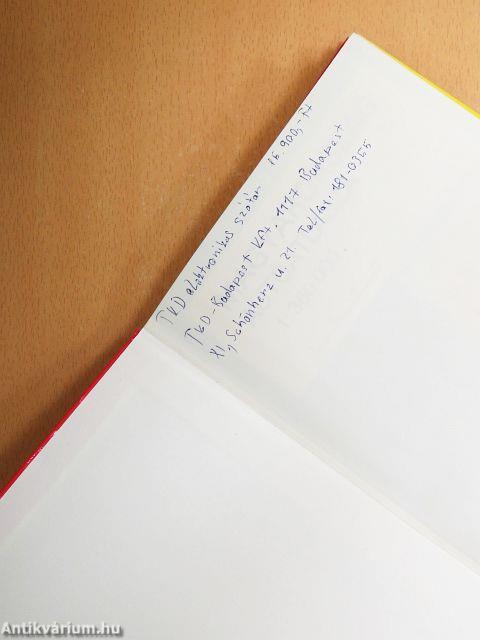 TKD elektronikus szótár 15.900,-Ft
TKD-Budapest Kft. 1117 Budapest
XI., Schönherz u. 21. Tel/fax: 181-0355
Antikvárium.hu